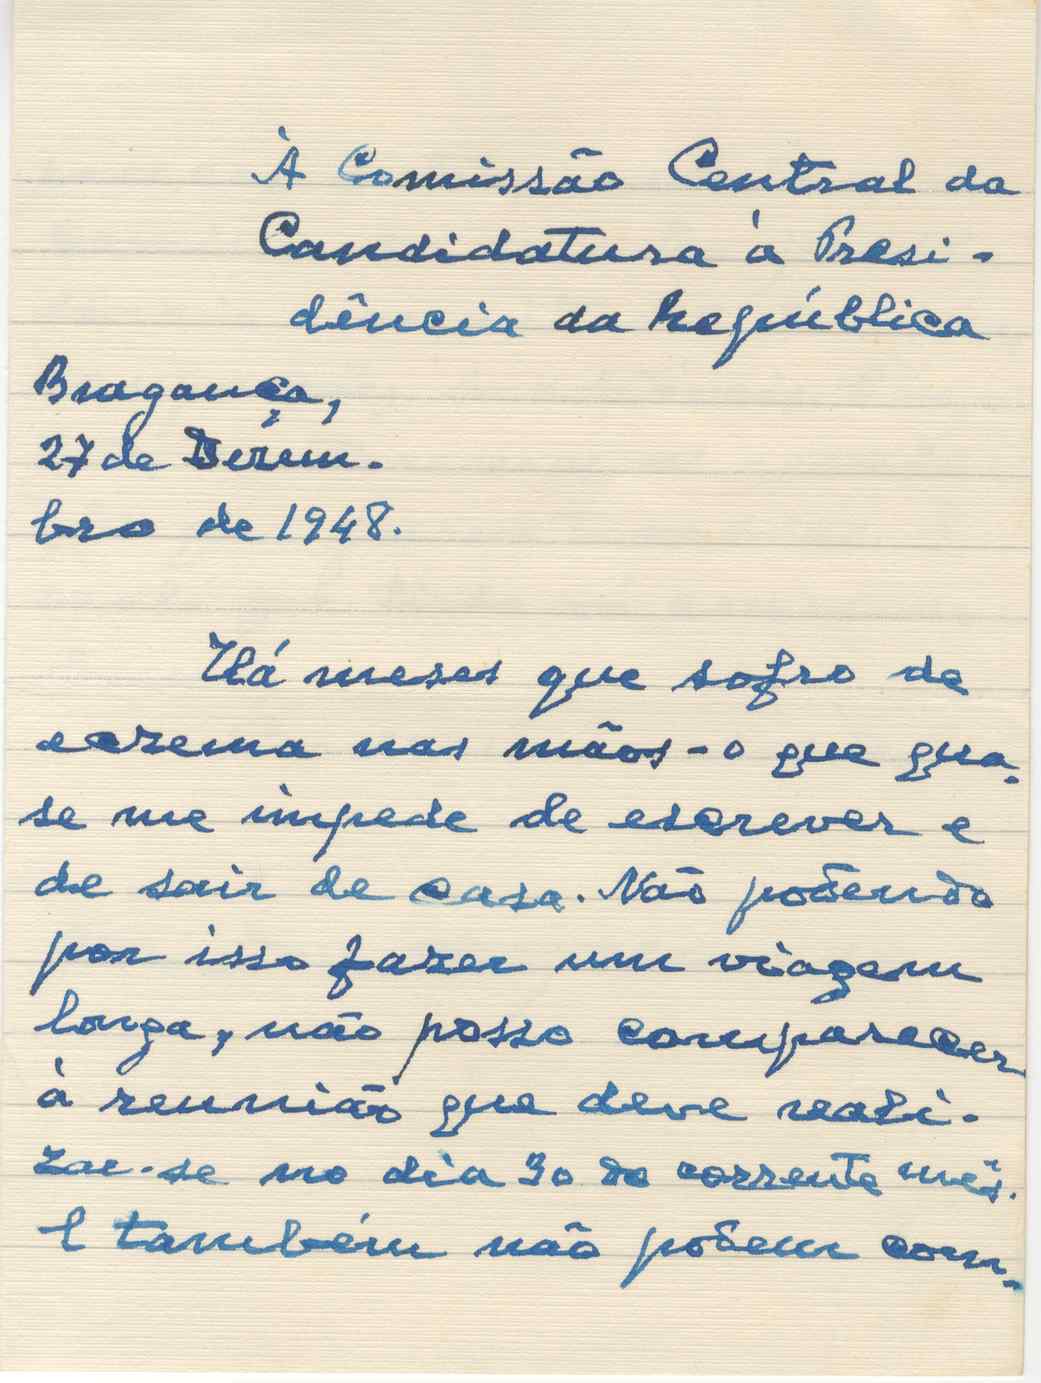 À Comissão Central da
Candidatura à Presi-
dência da República
Bragança,
27 de Dezem-
bro de 1948.
Há meses que sofro de
eczema nas mãos - o que qua-
se me impede de escrever e
de sair de casa. Não podendo
por isso fazer um viagem
longa, não posso comparecer
à reunião que deve reali-
zar-se no dia 30 do corrente mês.
E também não podem com-